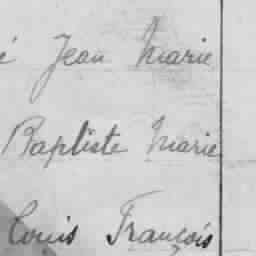 é Jean Marie
Baptiste Marie
Louis François